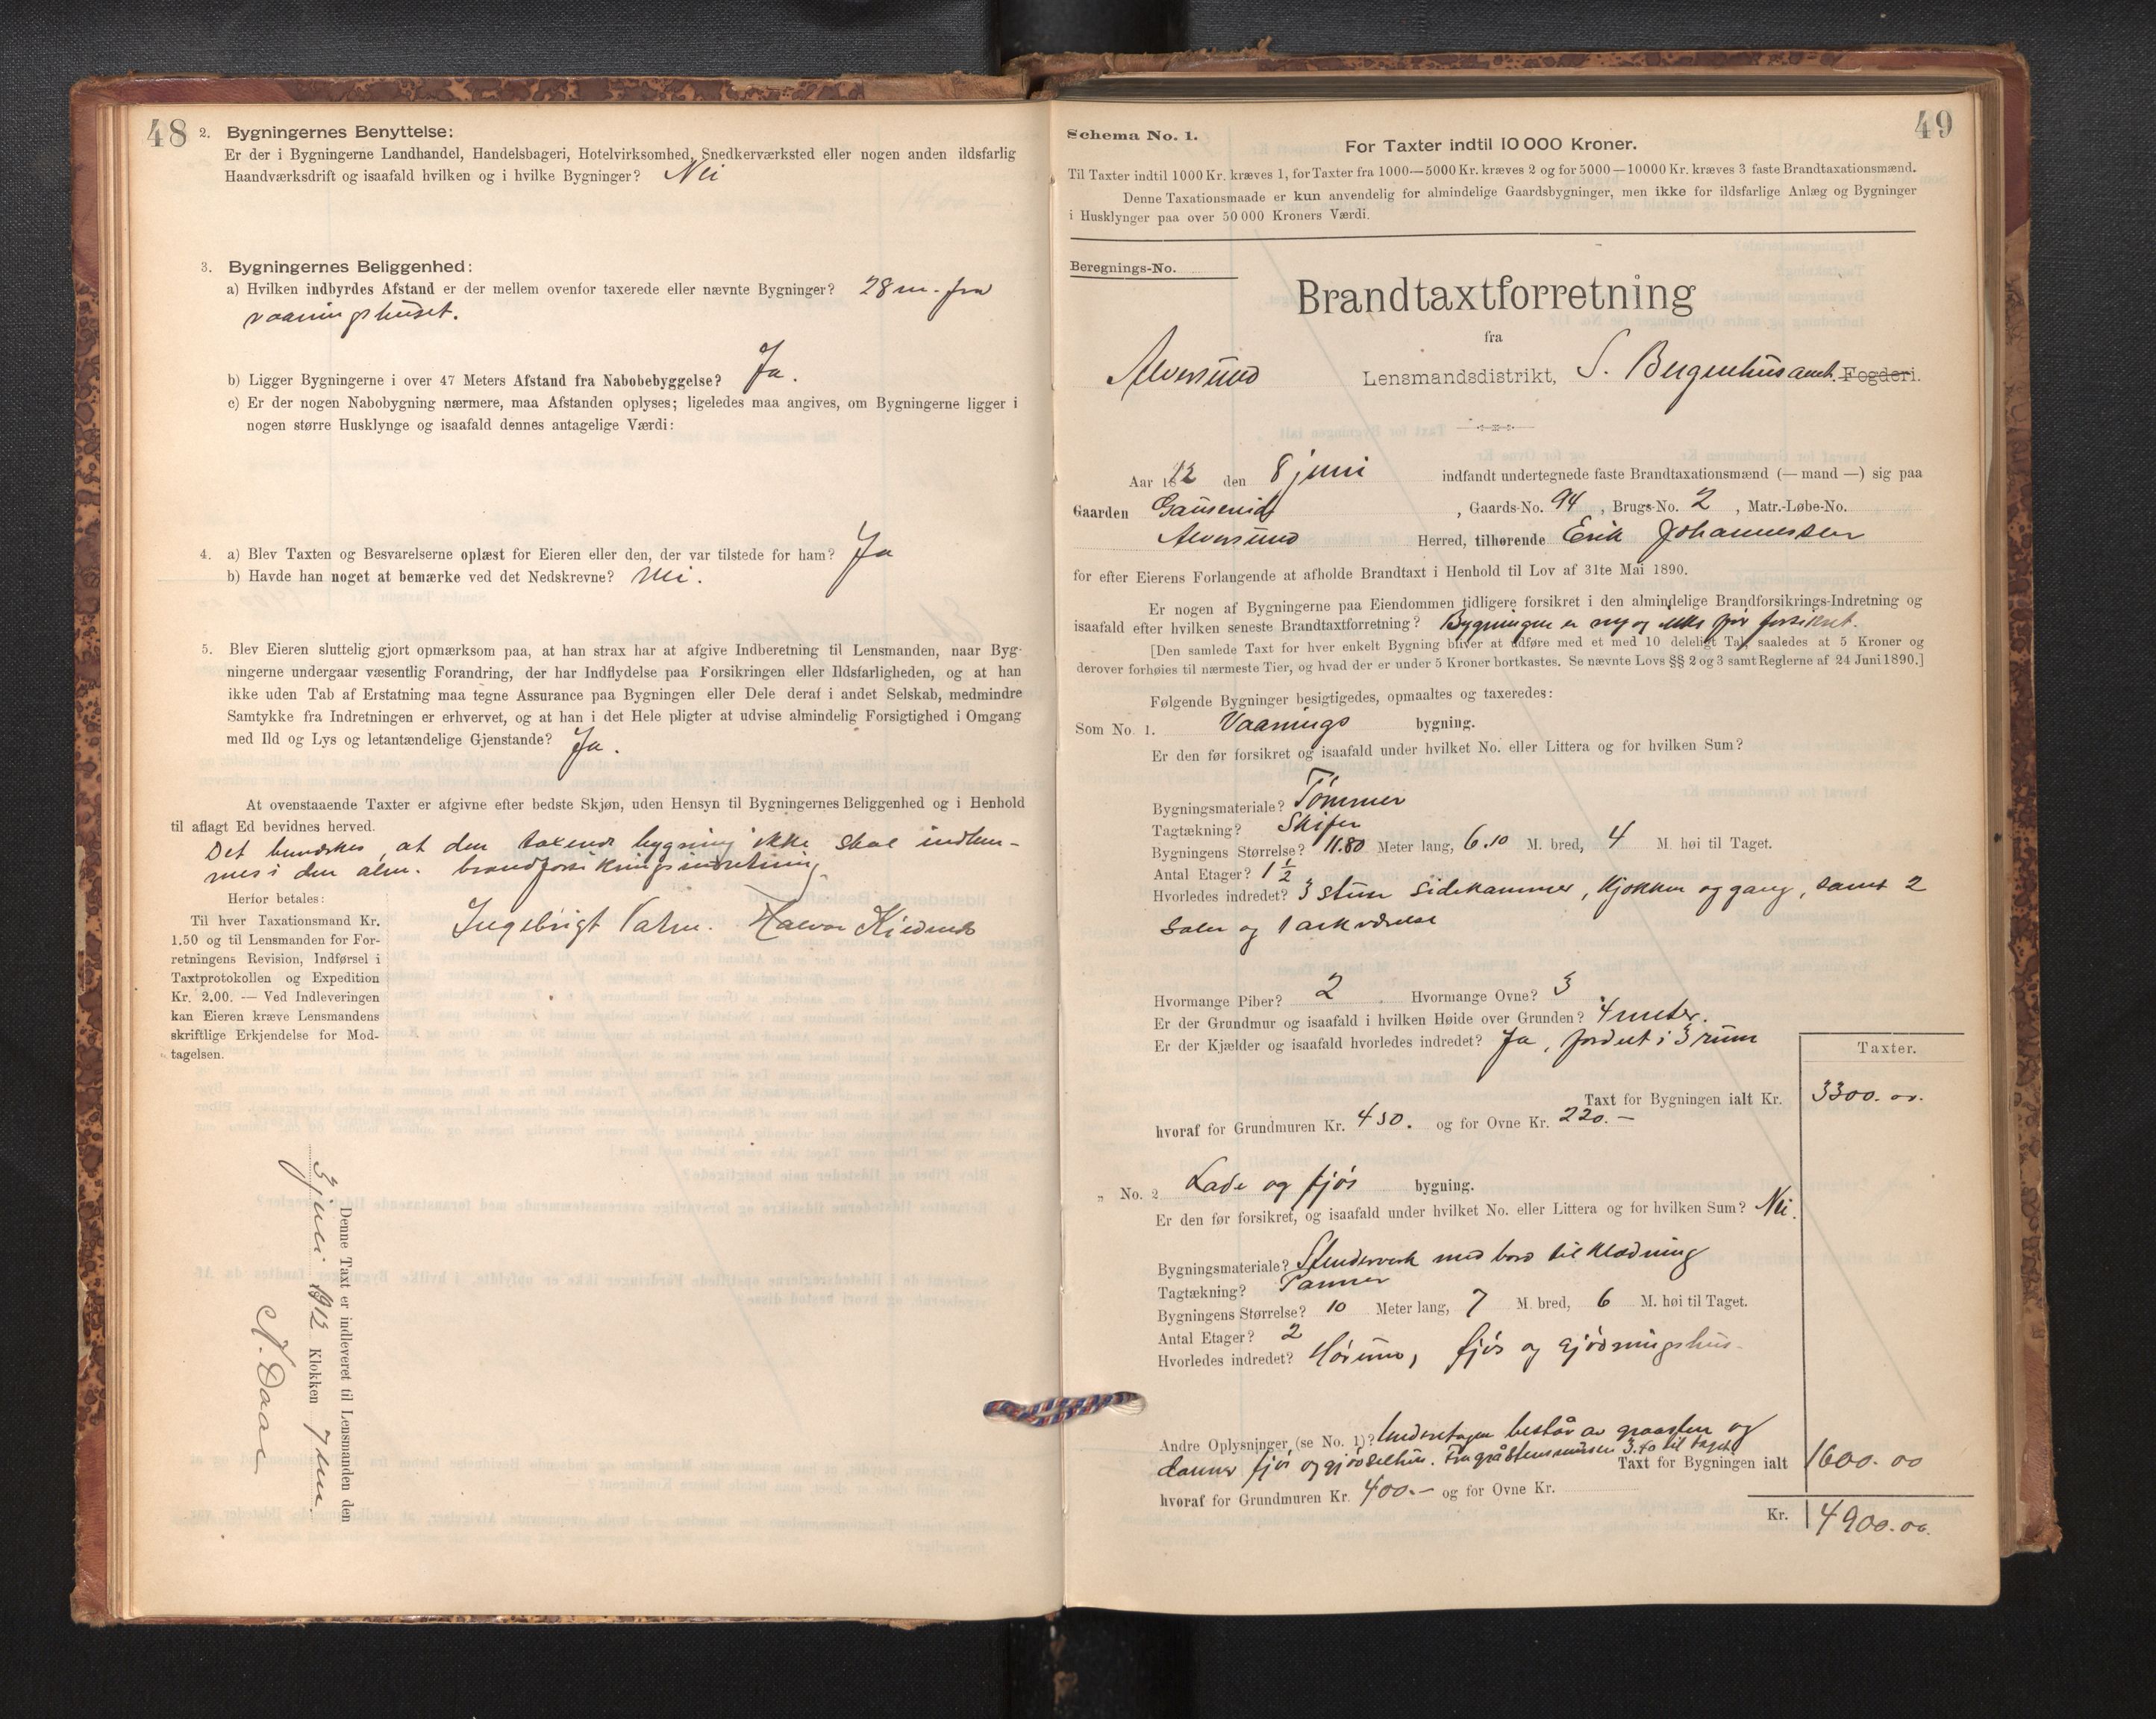 48
2. Bygningernes Benyttelse:
Er der i Bygningerne Landhandel, Handelsbageri, Hotelvirksomhed, Snedkerværksted eller nogen anden ildsfarlig
Haandværksdrift og isaafald hvilken og i hvilke Bygninger? Nei
3. Bygningernes Beliggenhed:
a) Hvilken indbyrdes Afstand er der mellem ovenfor taxerede eller nævnte Bygninger? 28 m. fra
vaaningshuset.
b) Ligger Bygningerne i over 47 Meters Afstand fra Nabobebyggelse? Ja.
c) Er der nogen Nabobygning nærmere, maa Afstanden oplyses; ligeledes maa angives, om Bygningerne ligger i
nogen større Husklynge og isaafald dennes antagelige Værdi:
4. a) Blev Taxten og Besvarelserne oplæst for Eieren eller den, der var tilstede for ham? Ja
b) Havde han noget at bemærke ved det Nedskrevne? Nei.
5. Blev Eieren sluttelig gjort opmærksom paa, at han strax har at afgive Indberetning til Lensmanden, naar Byg-
ningerne undergaar væsentlig Forandring, der har Indflydelse paa Forsikringen eller Ildsfarligheden, og at han
ikke uden Tab af Erstatning maa tegne Assurance paa Bygningen eller Dele deraf i andet Selskab, medmindre
Samtykke fra Indretningen er erhvervet, og at han i det Hele pligter at udvise almindelig Forsigtighed i Omgang
med Ild og Lys og letantændelige Gjenstande? Ja.
At ovenstaaende Taxter er afgivne efter bedste Skjøn, uden Hensyn til Bygningernes Beliggenhed og i Henhold
til aflagt Ed bevidnes herved.
Det bemerkes, at den takserte bygning ikke skal indlem-
mes i den alm. brandforsikringsindretning.
Ingebrigt Halvor
Herfor betales:
Til hver Taxationsmand Kr.
1.50 og til Lensmanden for For-
retningens Revision, Indførsel i
Taxtprotokollen og Expedition
Kr. 2.00. — Ved Indleveringen
kan Eieren kræve Lensmandens
skriftlige Erkjendelse for Mod-
tagelsen.
Denne Taxt er indleveret til Lensmanden den
3 juni 1912 Klokken 7
N. Daae
49
Schema No. 1.
For Taxter indtil 10 000 Kroner.
Til Taxter indtil 1000 Kr. kræves 1, for Taxter fra 1000—5000 Kr. kræves 2 og for 5000—10000 Kr. kræves 3 faste Brandtaxationsmænd.
Denne Taxationsmaade er kun anvendelig for almindelige Gaardsbygninger, men ikke for ildsfarlige Anlæg og Bygninger
i Husklynger paa over 50 000 Kroners Værdi.
Beregnings-No.
Brandtaxtforretning
fra
Alversund Lensmandsdistrikt, S. Bergenhus amt. Fogderi.
Aar 1912 den 8 juni indfandt undertegnede faste Brandtaxationsmænd (— mand —) sig paa
Gaarden , Gaards-No. 94, Brugs-No. 2, Matr.-Løbe-No.
Alversund Herred, tilhørende Erik Johannessen
for efter Eierens Forlangende at afholde Brandtaxt i Henhold til Lov af 31te Mai 1890.
Er nogen af Bygningerne paa Eiendommen tidligere forsikret i den almindelige Brandforsikrings-Indretning og
isaafald efter hvilken seneste Brandtaxtforretning? Bygningen er ny og ikke før forsikret.
[Den samlede Taxt for hver enkelt Bygning bliver at udføre med et med 10 deleligt Tal, saaledes at 5 Kroner og
derover forhøies til nærmeste Tier, og hvad der er under 5 Kroner bortkastes. Se nævnte Lovs §§ 2 og 3 samt Reglerne af 24 Juni 1890.]
Følgende Bygninger besigtigedes, opmaaltes og taxeredes:
Som No. 1. Vaanings bygning.
Er den før forsikret og isaafald under hvilket No. eller Littera og for hvilken Sum?
Bygningsmateriale? Tømmer
Tagtækning? Skifer
Bygningens Størrelse? 11.80 Meter lang, 6.10 M. bred, 4 M. høi til Taget.
Antal Etager? 1 1/2
Hvorledes indredet? 3 stuer sidekammer, kjøkken og gang, samt 2
saler og 1 arkværelse
Hvormange Piber? 2 Hvormange Ovne? 3
Er der Grundmur og isaafald i hvilken Høide over Grunden? 4 meter.
Er der Kjælder og isaafald hvorledes indredet? Ja, fordelt i 3 rum
Taxter.
Taxt for Bygningen ialt Kr. 3300.00.
hvoraf for Grundmuren Kr. 450. og for Ovne Kr. 220.—
„ No. 2 Lade og fjøs bygning.
Er den før forsikret, og isaafald under hvilket No. eller Littera og for hvilken Sum? Nei.
Bygningsmateriale? Stenderverk med bord til klædning
Tagtækning? Panner
Bygningens Størrelse? 10 Meter lang, 7 M. bred, 6 M. høi til Taget.
Antal Etager? 2
Hvorledes indredet? Hørum, fjøs og gjødningshus
Andre Oplysninger (se No. 1)? Underetagen består av graasten og
danner fjøs og gjødselhus. Fra gråstensmuren 3.40 til taget
Taxt for Bygningen ialt 1600.00
hvoraf for Grundmuren Kr. 400.— og for Ovne Kr.
Kr. 4900.00.